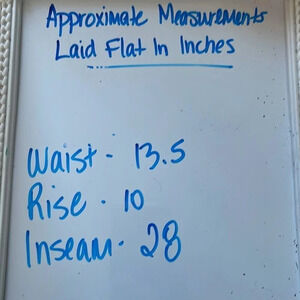 Approximate Measurements
Laid Flat In Inches
Waist - 13.5
Rise - 10
Inseam - 28